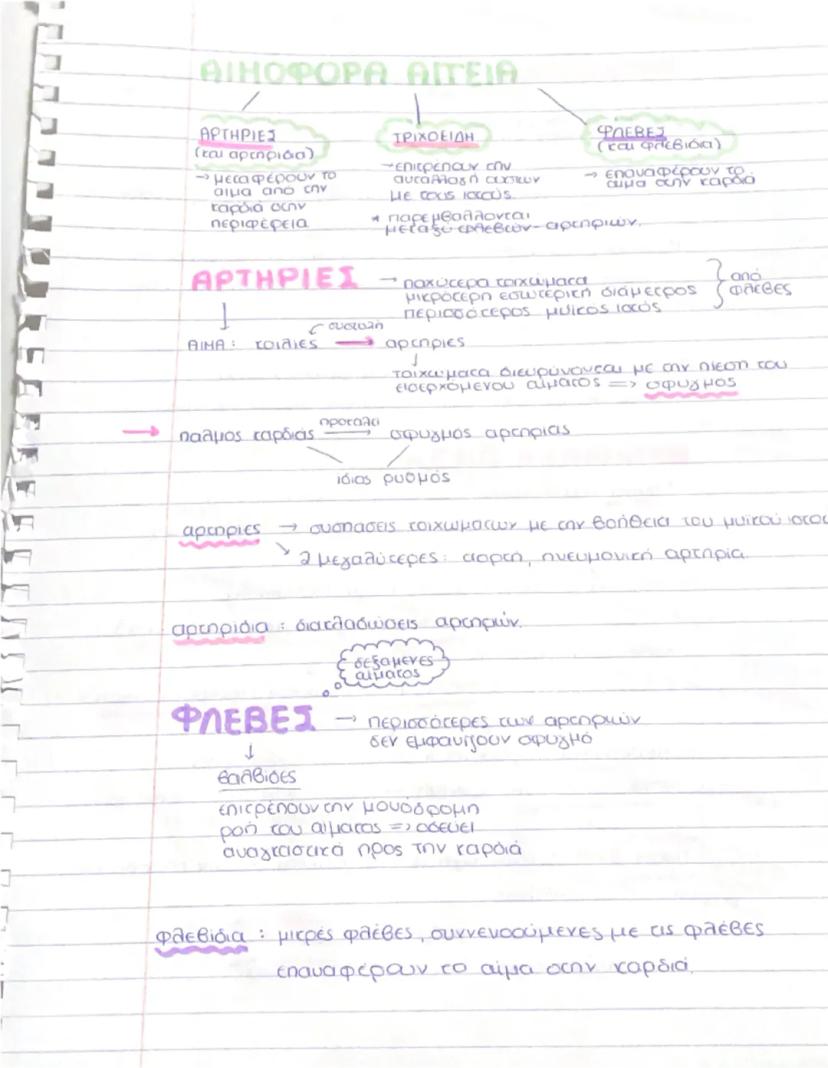 ΑΙΜΟΦΟΡΑ ΑΓΓΕΙΑ
ΑΡΤΗΡΙΕΣ
(και αρτηρίδια)
→ μεταφέρουν το
αίμα από την
καρδιά στην
περιφέρεια
ΤΡΙΧΟΕΙΔΗ
→επιτρέπουν την
ανταλλαγή ουσιών
με τους ιστούς.
* παρεμβάλλονται
μεταξύ φλεβών-αρτηριών.
ΦΛΕΒΕΣ
(και φλεβίδια)
→ επαναφέρουν το
αίμα στην καρδιά
ΑΡΤΗΡΙΕΣ → παχύτερα τοιχώματα
μικρότερη εσωτερική διάμετρος
περισσότερος μυϊκός ιστός
από
φλέβες
συστολή
ΑΙΜΑ: κοιλίες → αρτηρίες
↓
τοιχώματα διευρύνονται με την πίεση του
εισερχόμενου αίματος => σφυγμός
προκαλεί
→ παλμός καρδιάς → σφυγμός αρτηρίας
ίδιος ρυθμός
αρτηρίες → συσπάσεις τοιχωμάτων με την βοήθεια του μυϊκού ιστού
↘ 2 μεγαλύτερες: αορτή, πνευμονική αρτηρία.
αρτηρίδια: διακλαδώσεις αρτηριών.
δεξαμενές
αίματος
ΦΛΕΒΕΣ → περισσότερες των αρτηριών
δεν εμφανίζουν σφυγμό
↓
βαλβίδες
επιτρέπουν την μονόδρομη
ροή του αίματος => οδεύει
αναγκαστικά προς την καρδιά
φλεβίδια: μικρές φλέβες, συννενοούμενες με τις φλέβες
επαναφέρουν το αίμα στην καρδιά.